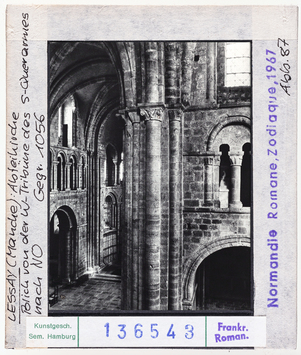 LESSAY (Manche), Abteikirche
Blick von der W-Tribüne des S-Querarmes
nach NO Gegr. 1056
Normandie Romane, Zodiaque, 1967
Abb. 87
Kunstgesch.
Sem. Hamburg
136543
Frankr.
Roman.